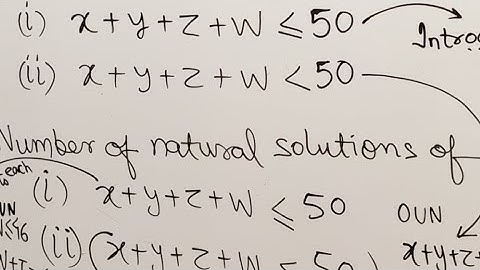 (i) x+y+z+w ≤ 50
(ii) x+y+z+w < 50
Number of natural solutions of
each
(i) x+y+z+w ≤ 50
OUN
(ii) (x+y+z+w ≤ 50)
x+y+z+